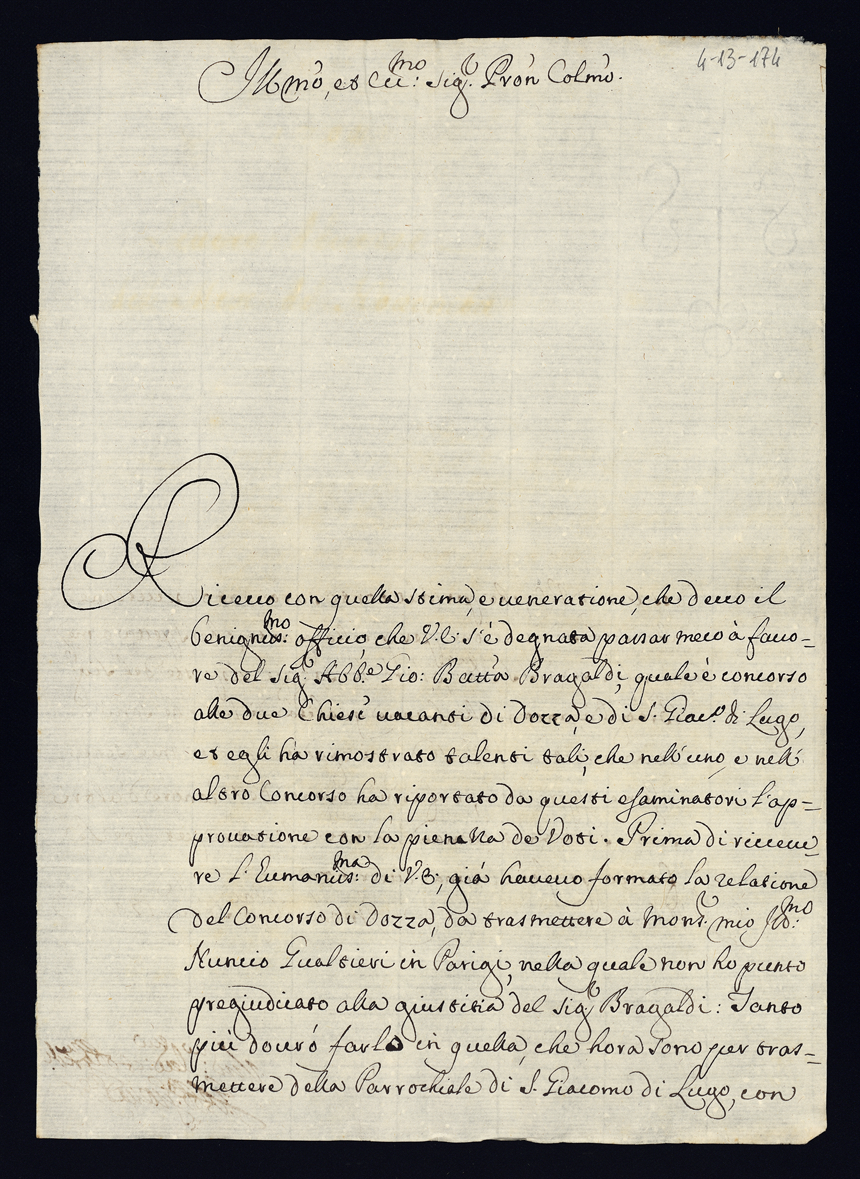 4-13-174
Illmõ, et Ecc:mo Sigr. Prõn Colmõ.
Riceuo con quella stima, e ueneratione, che deuo il
benignis:mo officio che V.E. s'è degnata passar meco à fauo-
re del Sigr. Abb.e Gio: Batt'a Bragaldi, quale è concorso
alle due Chiese uacanti di Dozza, e di S. Giac.o di Lugo,
et egli ha rimostrato talenti tali, che nell'uno, e nell'
altro Concorso ha riportato da questi esaminatori l'ap-
prouatione con la pienezza de Voti. Prima di riceue-
re l'Eumanis:ma di V.E., già haueuo formato la relatione
del Concorso di Dozza, da trasmettere à Monsr. mio Ill:mo
Nuncio Gualtieri in Parigi, nella quale non ho punto
pregiudicato alla giustitia del Sigr. Bragaldi: Tanto
più dourò farlo in quella, che hora sono per tras-
mettere della Parrochiale di S. Giacomo di Lugo, con